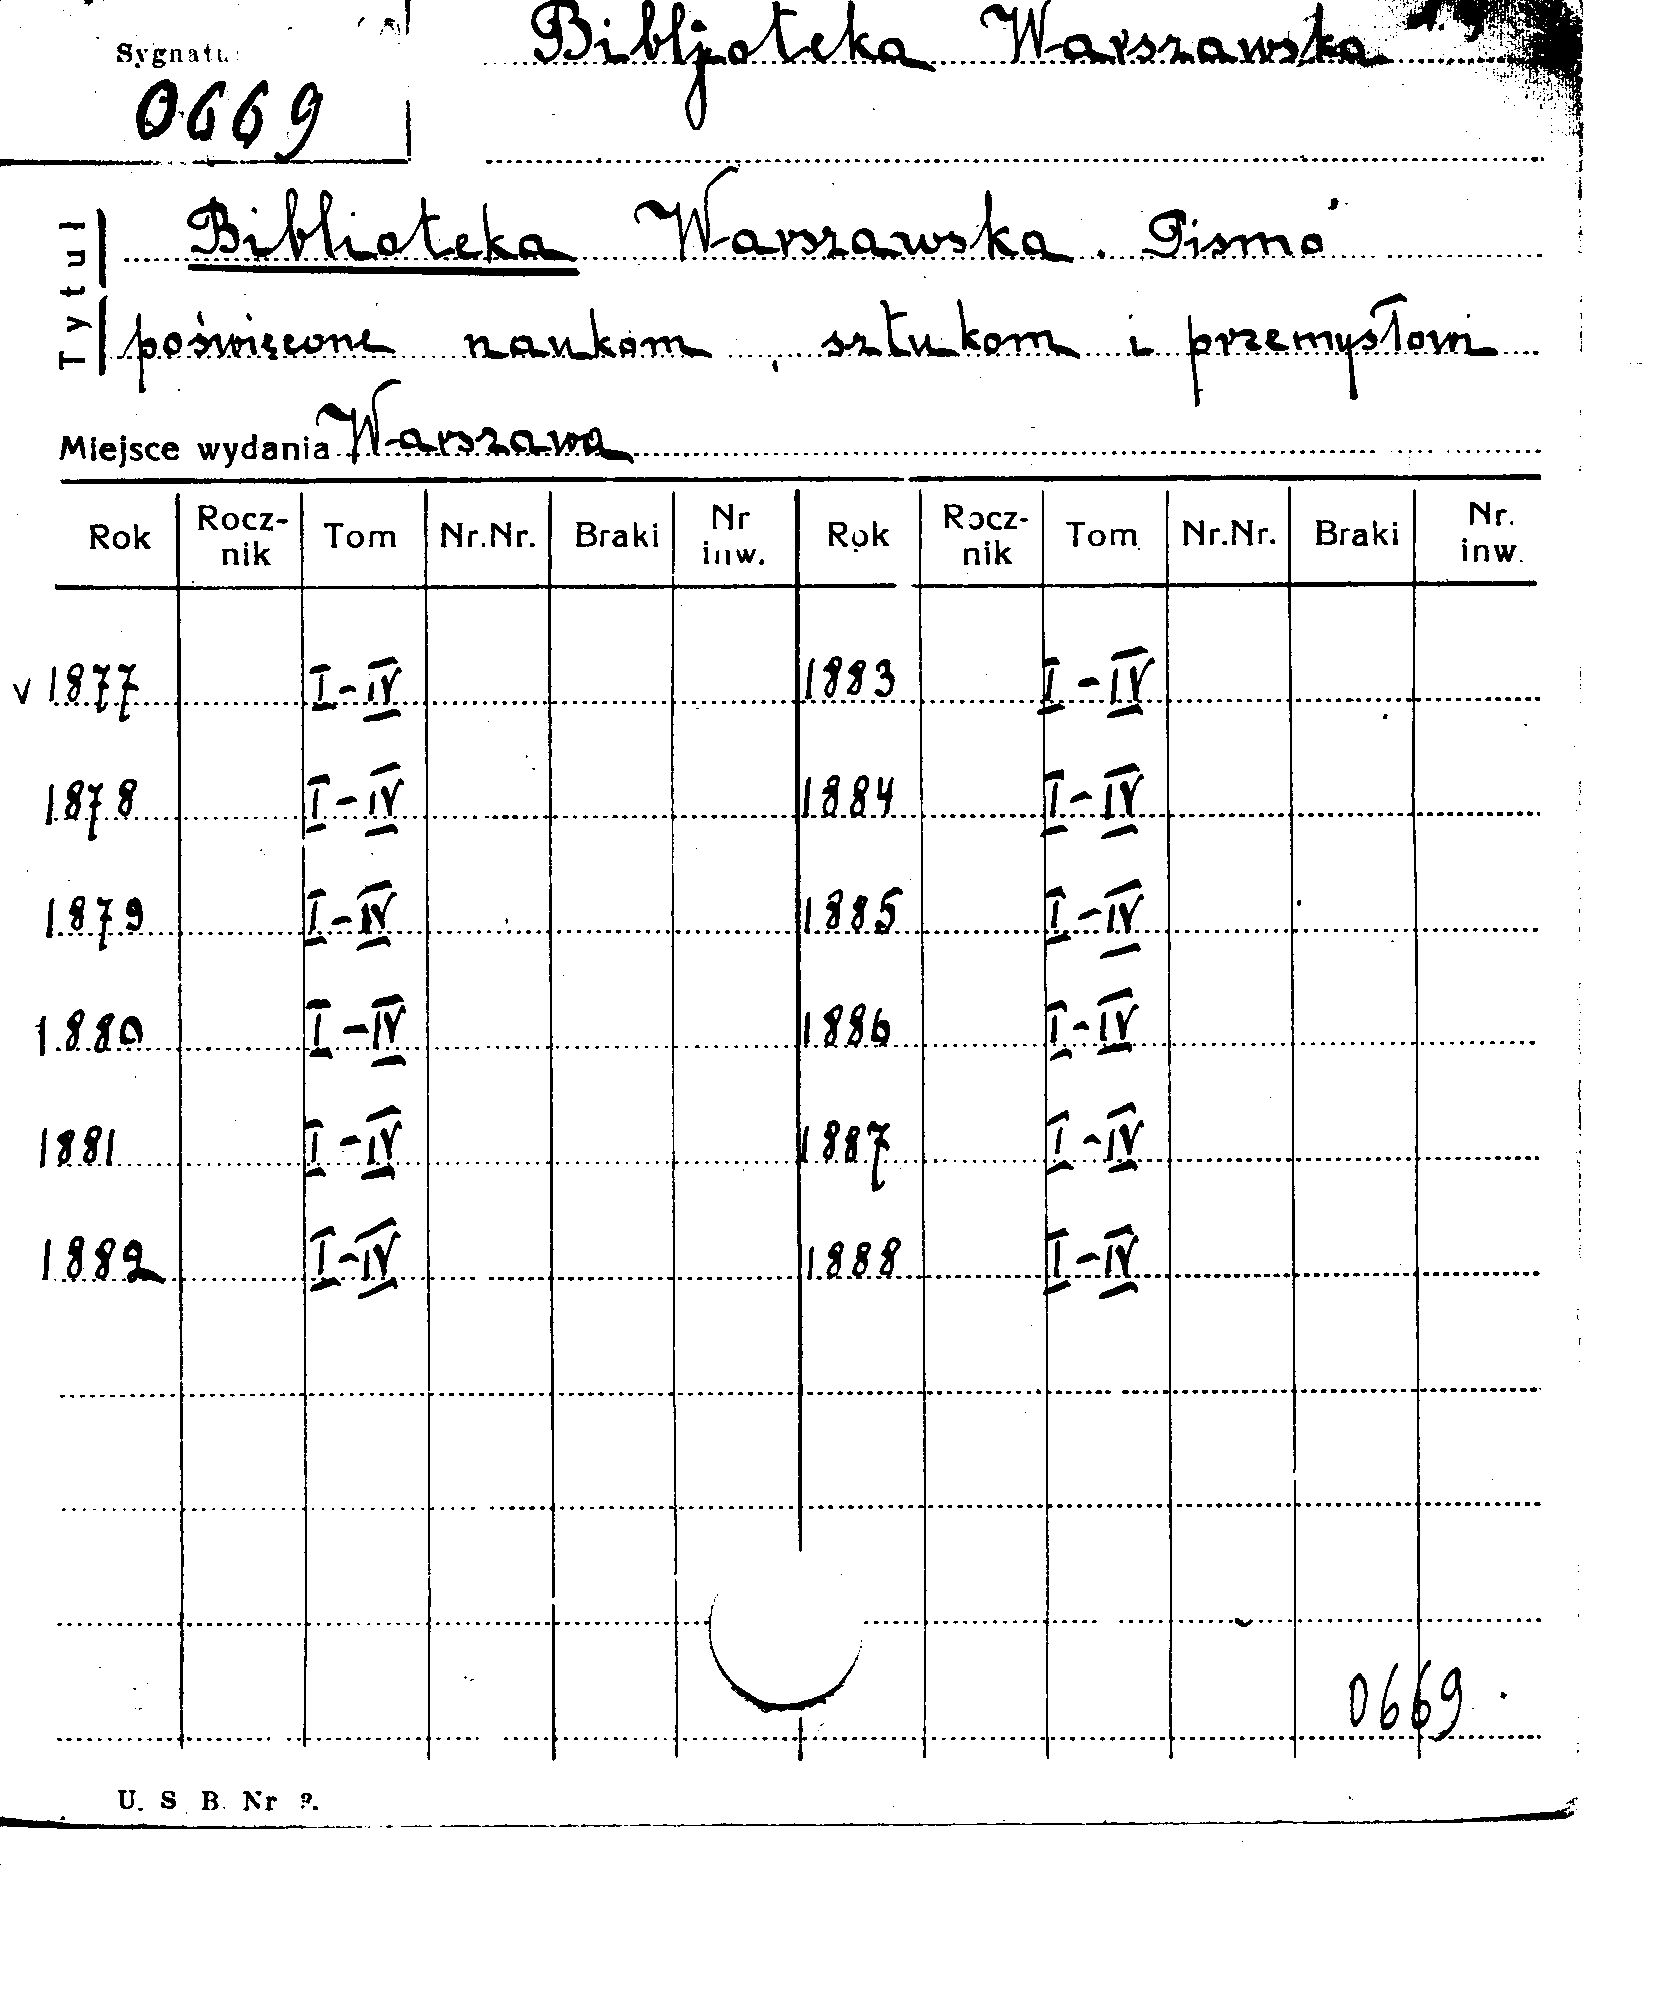 Sygnatu
Bibljoteka Warszawska
0669
Tytuł
Biblioteka Warszawska. Pismo
poświęcone naukom, sztukom i przemysłowi
Miejsce wydania Warszawa
Rok Rocz-nik Tom Nr.Nr. Braki Nr inw. Rok Rocz-nik Tom Nr.Nr. Braki Nr. inw.
v 1877 I-IV 1883 I-IV
1878 I-IV 1884 I-IV
1879 I-IV 1885 I-IV
1880 I-IV 1886 I-IV
1881 I-IV 1887 I-IV
1882 I-IV 1888 I-IV
0669.
U. S B. Nr 9.